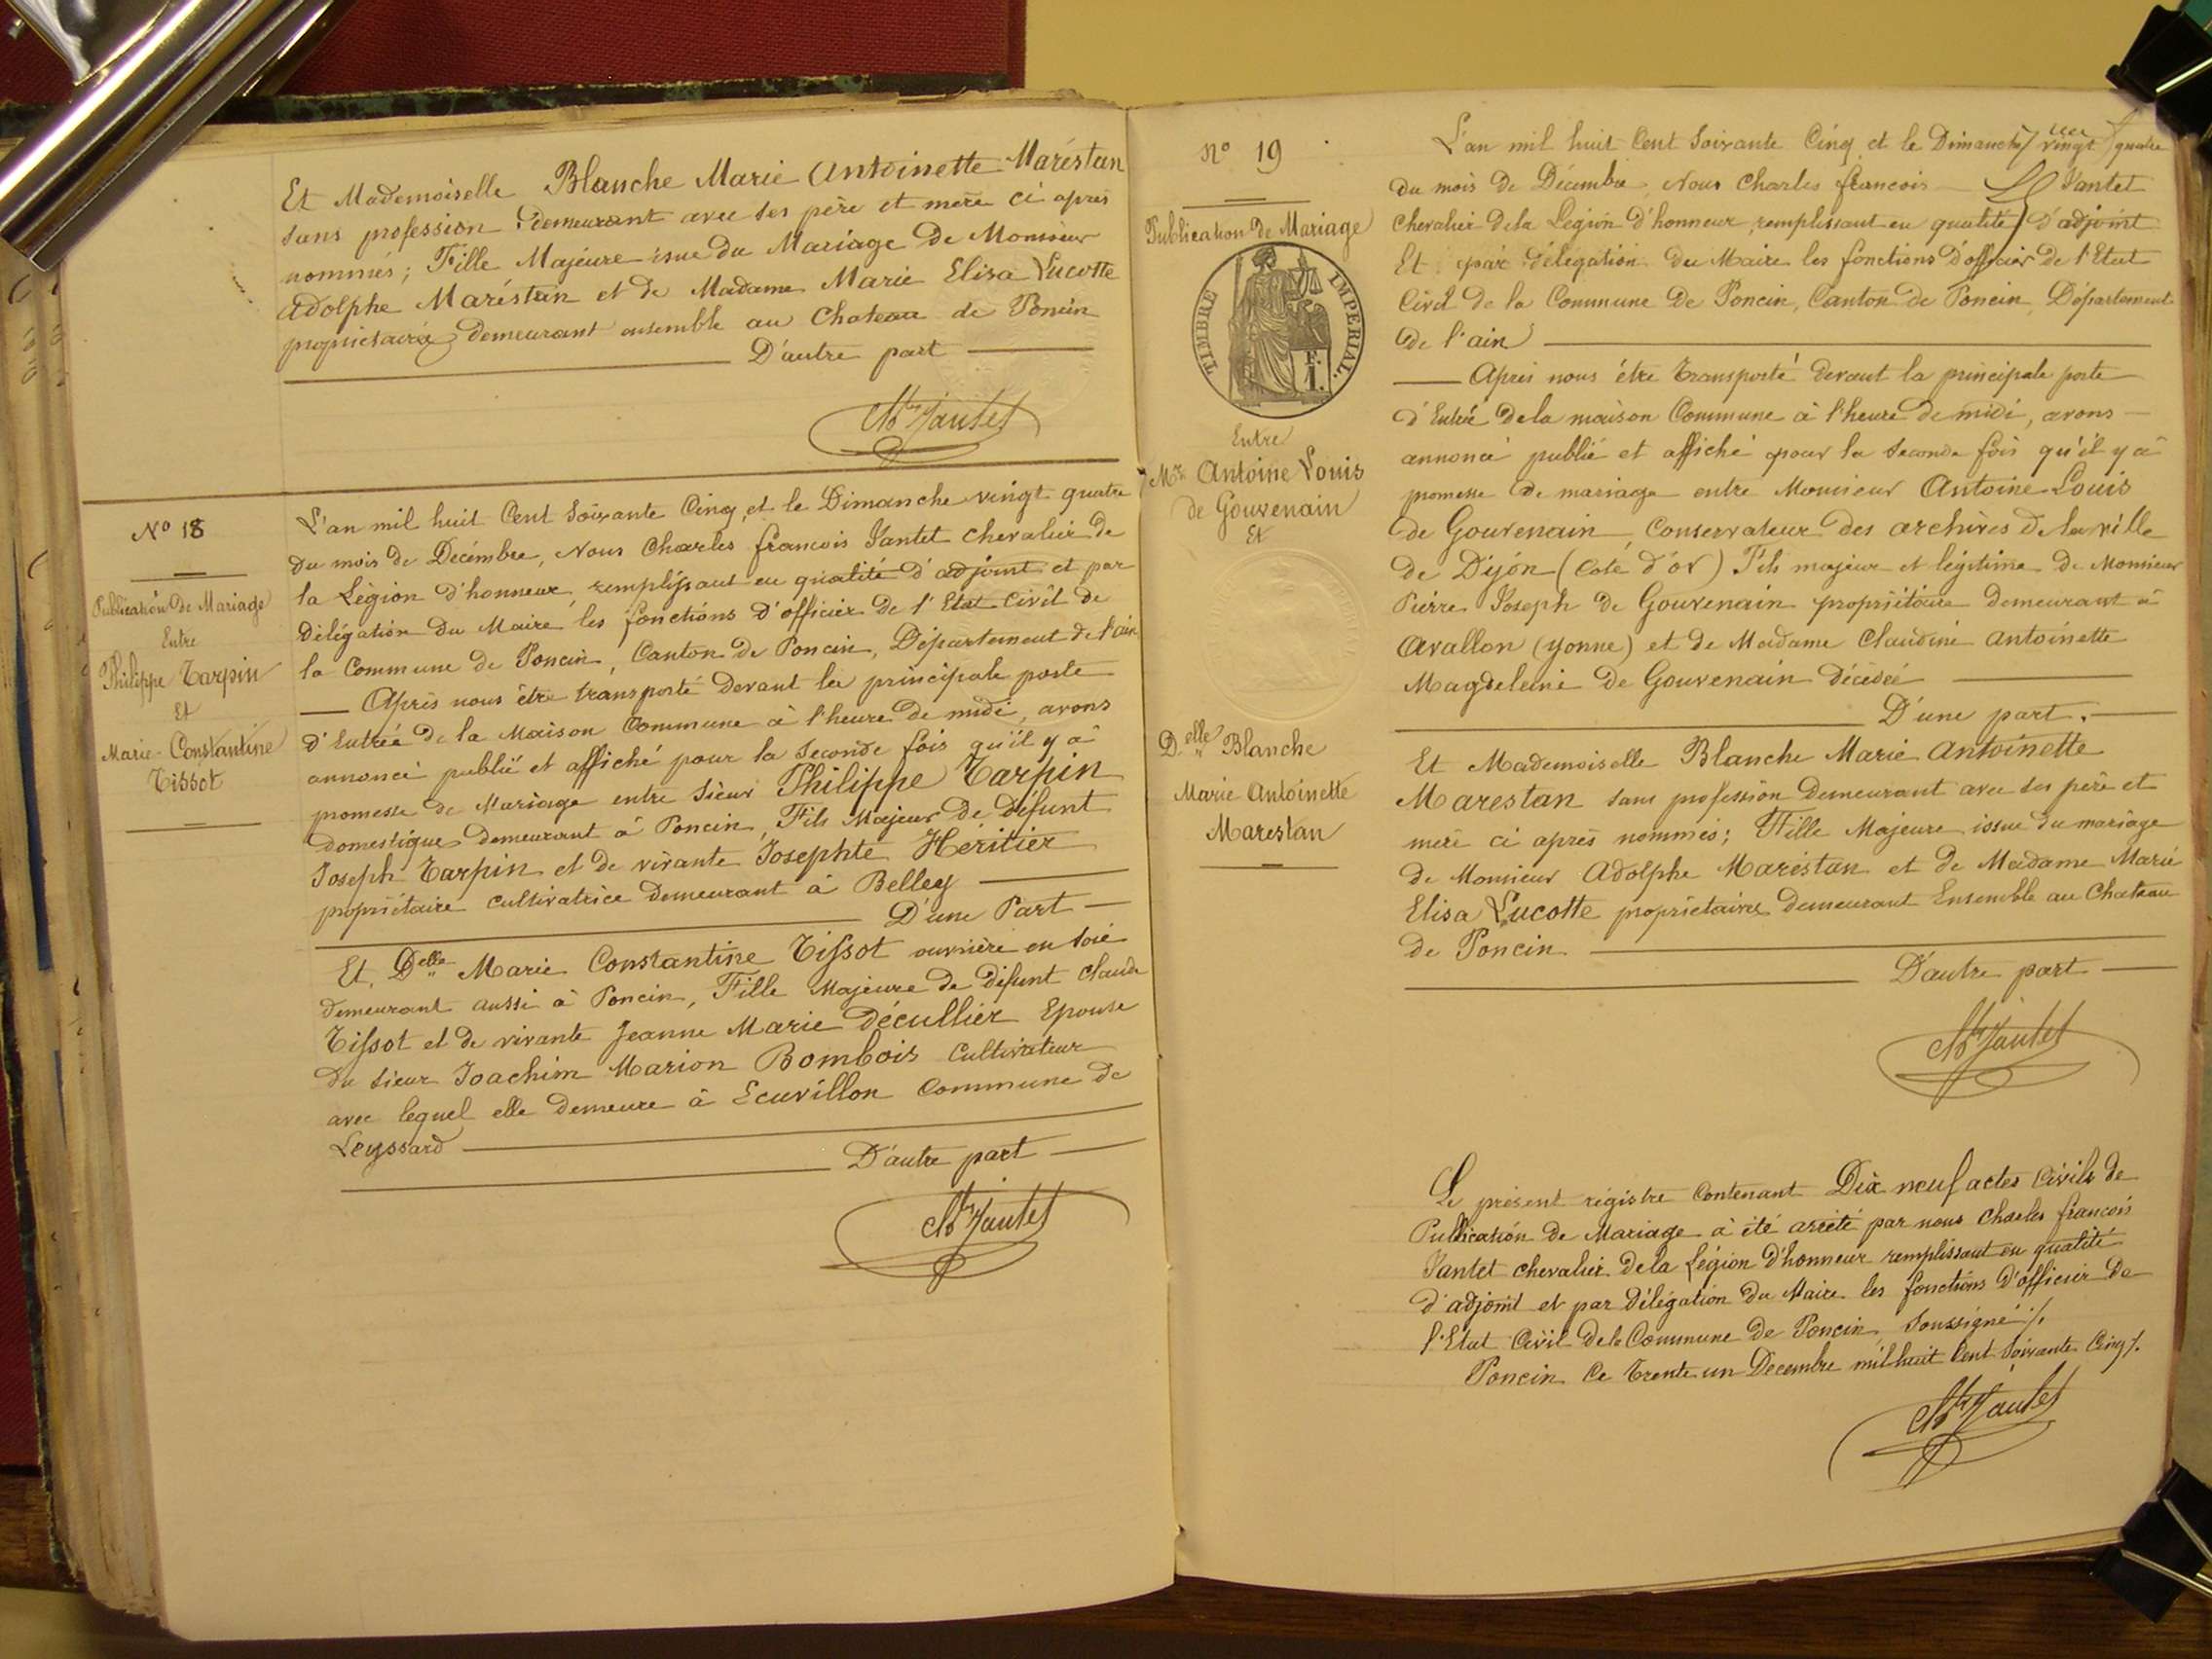 Et Mademoiselle Blanche Marie Antoinette Maréstan
sans profession demeurant avec ses père et mère ci après
nommés; Fille Majeure isue du Mariage de Monsieur
Adolphe Maréstan et de Madame Marie Elisa Lucotte
propriétaires demeurant ensemble au Chateau de Poncin
D'autre part
Ch Jantet
N° 18
Publication de Mariage
Entre
Philippe Tarpin
Et
Marie-Constantine
Tissot
L'an mil huit Cent Soixante Cinq et le Dimanche vingt quatre
du mois de Décembre, Nous Charles francois Jantet chevalier de
la Légion d'honneur, remplissant en qualité d'adjoint et par
délégation du Maire les fonctions d'officier de l'Etat Civil de
la Commune de Poncin, Canton de Poncin, Département de l'ain
Après nous être transporté devant la principale porte
d'Entrée de la Maison Commune à l'heure de midi, avons
annoncé publié et affiché pour la Seconde fois qu'il y a
promesse de Mariage entre Sieur Philippe Tarpin
domestique demeurant à Poncin, Fils Majeur de défunt
Joseph Tarpin et de vivante Josephte Héritier
propriétaire cultivatrice demeurant à Belley
D'une Part
Et, Delle Marie Constantine Tissot ouvrière en soie
demeurant aussi à Poncin, Fille Majeure de défunt Claude
Tissot et de vivante Jeanne Marie Décullier Epouse
du Sieur Joachim Marion Bombois Cultivateur
avec lequel elle demeure à Ecuvillon Commune de
Leyssard
D'autre part
Ch Jantet
N° 19
Publication de Mariage
TIMBRE IMPERIAL.
Entre
Mr Antoine Louis
de Gouvenain
Et
Delle Blanche
Marie Antoinette
Marestan
L'an mil huit Cent Soixante Cinq et le Dimanche vingt quatre
du mois de Décembre, Nous Charles francois Jantet
chevalier de la Légion d'honneur, remplissant en qualité d'adjoint
Et par délégation du Maire les fonctions d'officier de l'Etat
Civil de la Commune de Poncin, Canton de Poncin, Département
de l'ain
Après nous être transporté devant la principale porte
d'Entrée de la maison Commune à l'heure de midi, avons
annoncé publié et affiché pour la Seconde fois qu'il y a
promesse de mariage entre Monsieur Antoine Louis
de Gouvenain, Conservateur des archives de la ville
de Dijon (Cote d'or) Fils majeur et légitime de Monsieur
Pierre Joseph de Gouvenain propriétaire demeurant à
Avallon (yonne) et de Madame Claudine Antoinette
Magdeleine de Gouvenain décédée
D'une part.
Et Mademoiselle Blanche Marie Antoinette
Marestan sans profession demeurant avec ses père et
mère ci après nommés; Fille Majeure issue du mariage
de Monsieur Adolphe Maréstan et de Madame Marie
Elisa Lucotte propriétaires demeurant Ensemble au Chateau
de Poncin
D'autre part
Ch Jantet
Le présent régistre Contenant Dix neuf actes Civils de
Publication de Mariage à été arrêté par nous Charles francois
Jantet chevalier de la Légion d'honneur remplissant en qualité
d'adjoint et par délégation du Maire les fonctions d'officier de
l'Etat Civil de la Commune de Poncin, Soussigné ./.
Poncin le trente un Decembre mil huit Cent Soixante Cinq ./.
Ch Jantet